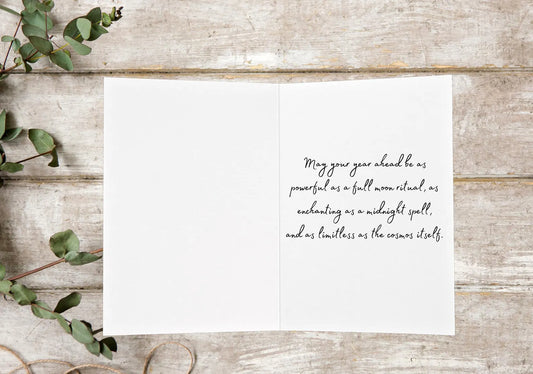 May your year ahead be as
powerful as a full moon ritual, as
enchanting as a midnight spell,
and as limitless as the cosmos itself.